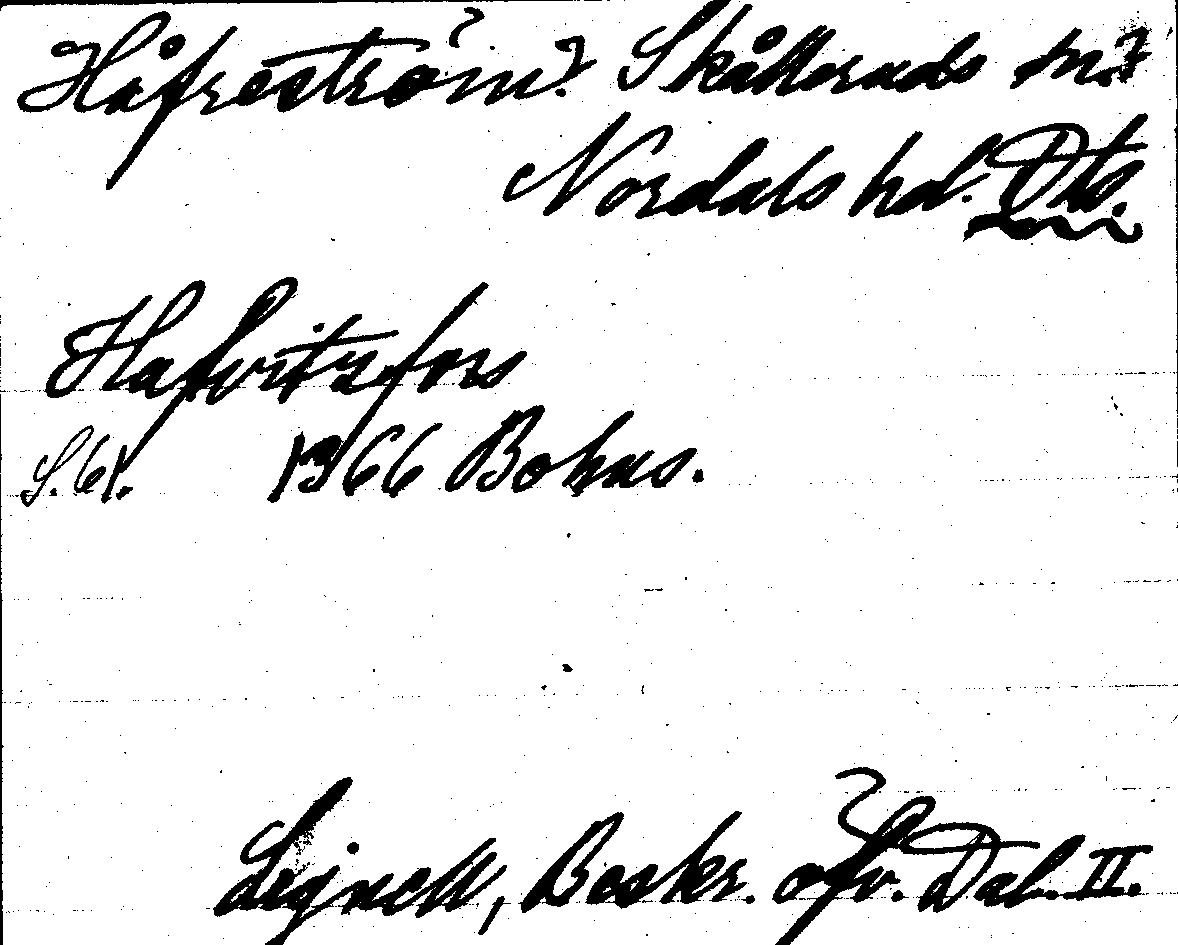 Håfreström? Skålleruds sn?
Nordals hd. Dls.
Hafuitzfors
S. 61. 1366 Bohus.
Lignell, Beskr. öfv. Dal. II.